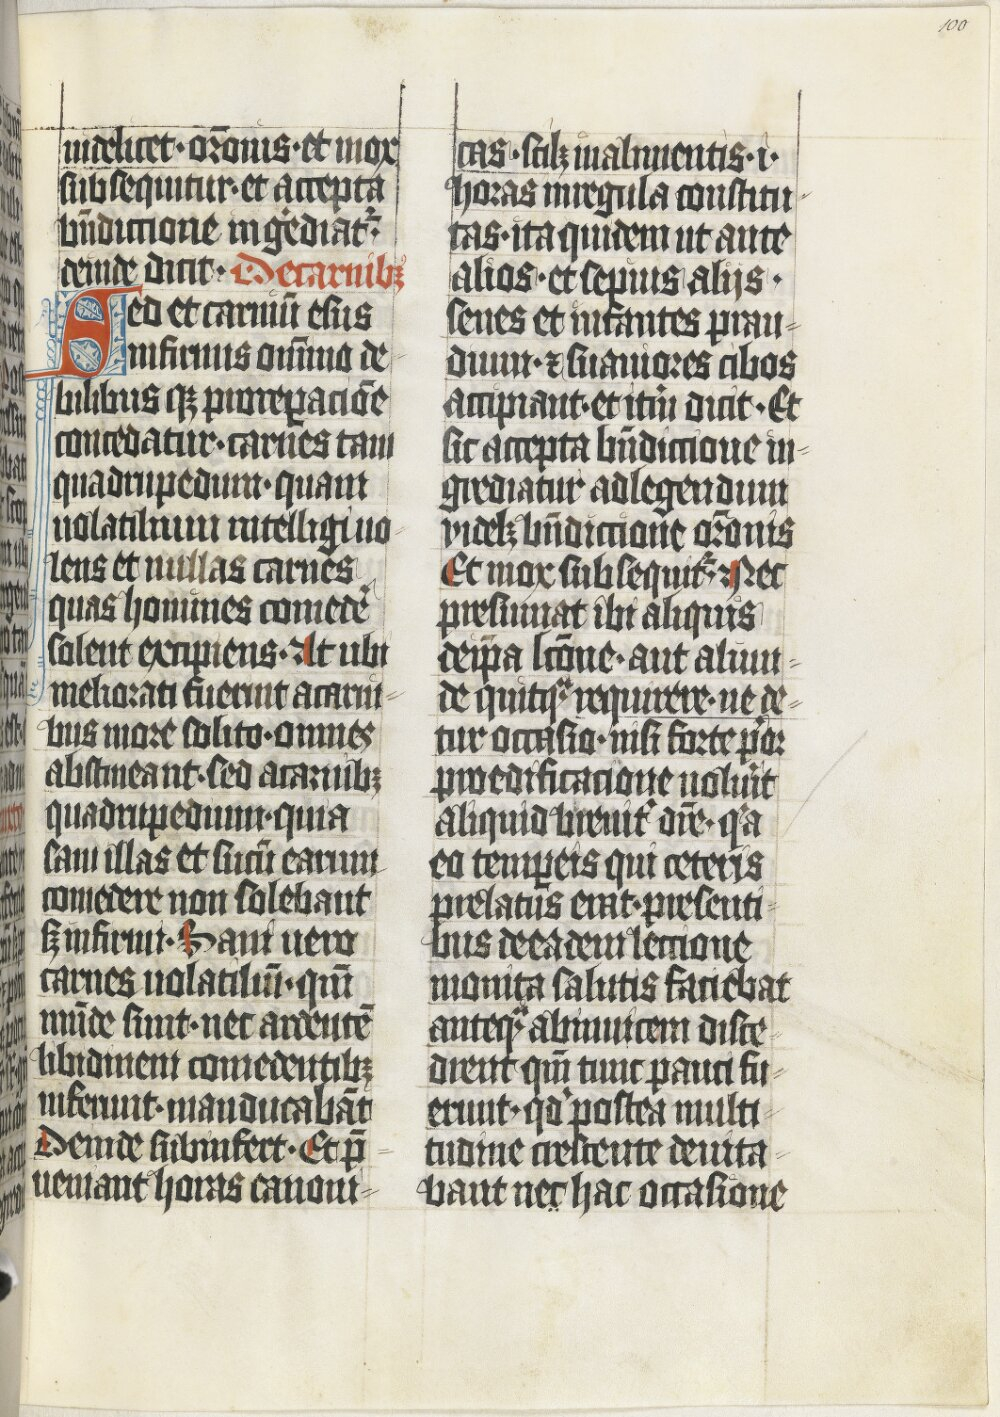 100
uidelicet · or̄onis · et mox
subsequitur · et accepta
bn̄dictione ingrediat᷑ ·
deinde dicit · De carnibꝫ
Sed et carniū esus
infirmis om̄ino de
bilibus qꝫ pro reparaciōe
concedatur · carnes tam
quadrupedum · quam
uolatilium intelligi uo
lens et nullas carnes
quas homines comedē
solent excipiens · At ubi
meliorati fuerint a carni
bus more solito · omnes
abstineant · sed a carnibꝫ
quadrupedium · quia
sani illas et sucū earum
comedere non solebant
sꝫ infirmi · Sani uero
carnes uolatiliū · qm̄
mūde sunt · nec ardentē
libidinem comedentibꝫ
inferunt · manducabāt
Deinde subinfert · Et p̄
ueniant horas canoni
cas · scilꝫ in alimentis · i ·
horas in regula constitu
tas · ita quidem ut ante
alios · et sepius alijs ·
senes et infantes pran
dium · ⁊ suauiores cibos
accipiant · et itm̄ dicit · Et
sic accepta bn̄dictione in
grediatur ad legendum
videlꝫ bn̄dictione or̄onis
Et mox subsequit᷑ · Nec
presumat ibi aliquis
de ip̄a lcōne · aut aliun
de quitqͣ requirere · ne de
tur occasio · nisi forte p̓or
pro edificacione uolu̓it
aliquid breuit᷑ dic̄e · qͥa
eo temp̄eis qui ceteris
prelatus erat · presenti
bus de eadem leccione
monita salutis faciebat
anteqͣ ab inuicem disce
dient qm̄ tunc pauci fu
erunt · qd̓ postea multi
tudine crescente deuita
bant nec hac occasione